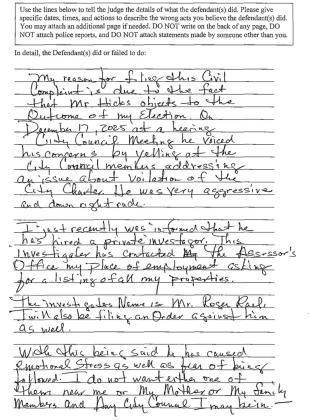 Use the lines below to tell the judge the details of what the defendant(s) did. Please give
specific dates, times, and actions to describe the wrong acts you believe the defendant(s) did.
You may attach an additional page if needed. DO NOT write on the back of any page, DO
NOT attach police reports, and DO NOT attach statements made by someone other than you.
In detail, the Defendant(s) did or failed to do:
My reason for filing this Civil
Complaint is due to the fact
that Mr Hicks objects to the
Outcome of my Election. On
December 17, 2025 at a hearing
City Council Meeting he voiced
his concerns by yelling at the
City Council members addressing
an issue about Voilation of the
City Charter. He was very aggressive
and down right rude.
I just recently was informed that he
has hired a private investagor. This
Investigator has contacted the Assessor's
Office my place of employment asking
for a listing of all my properties.
The investigators Name is Mr. Roger
I will also be filing an Order against him
as well.
With this being said he has caused
emotional Stress as well as fear of being
followed. I do not want either one of
them near me or My Mother or My family
Members and Any City Council I may be in